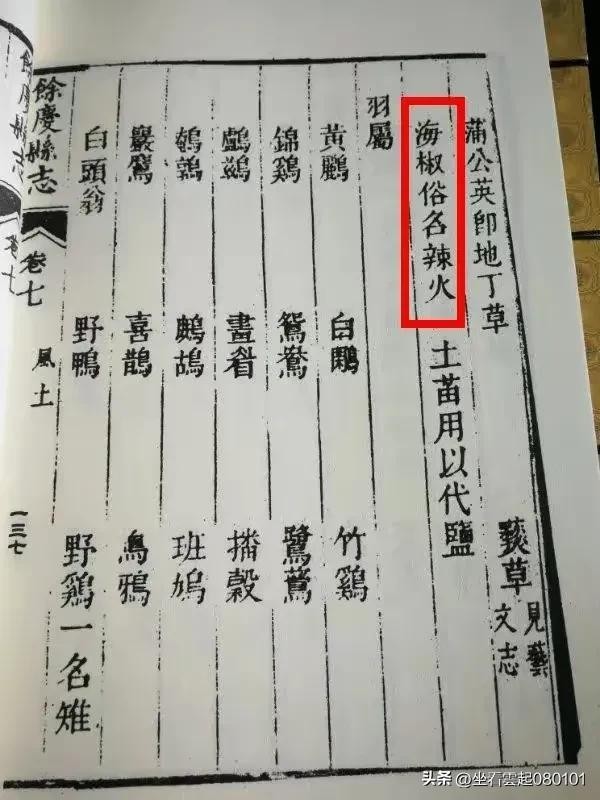 蒲公英即地丁草 草 見藝文志
海椒俗名辣火 土苗用以代鹽
羽屬
黃鸝 白鷴 竹鷄
錦鷄 鴛鴦 鷺鷥
鸕鷀 畫眉 播穀
鵪鶉 鷓鴣 班鳩
巖鷹 喜鵲 烏鴉
白頭翁 野鴨 野鷄一名雉
餘慶縣志 卷七 風土 一三七
餘慶縣志 卷七
头条 @坐石雲起080101